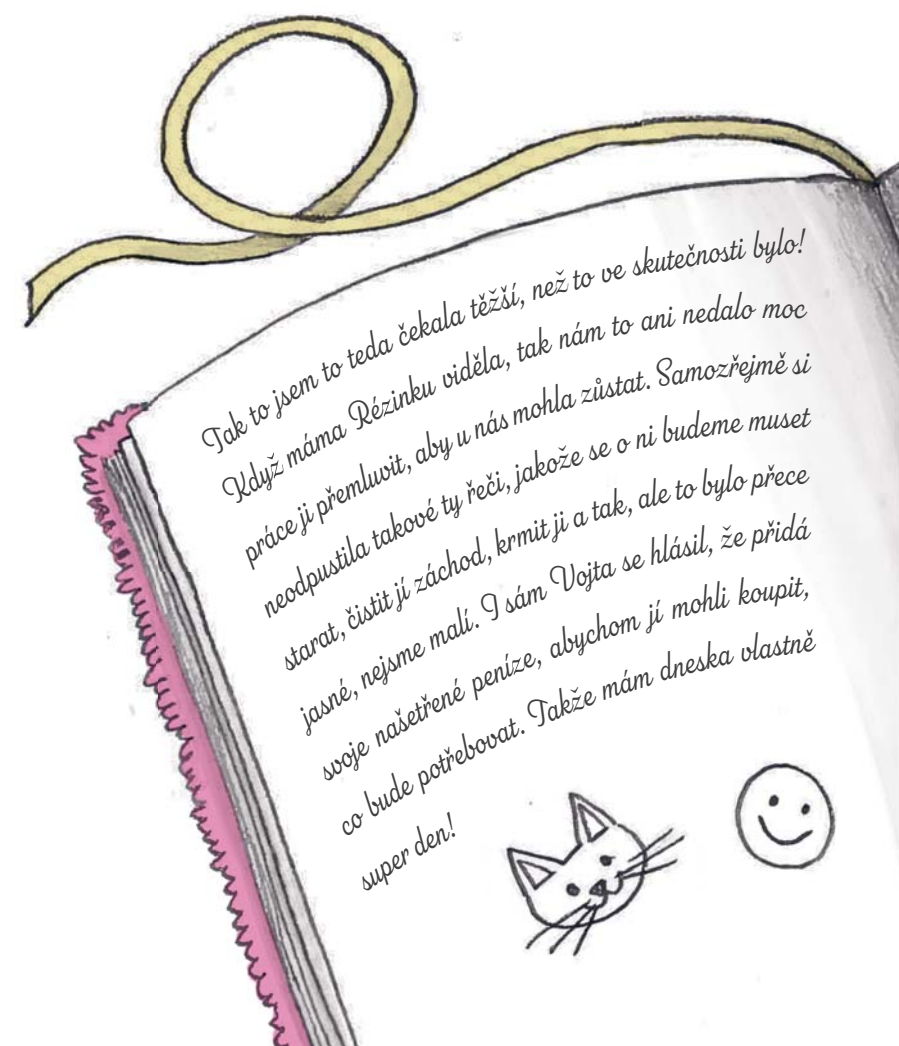 Tak to jsem to teda čekala těžší, než to ve skutečnosti bylo!
Když máma Rézinku viděla, tak nám to ani nedalo moc
práce ji přemluvit, aby u nás mohla zůstat. Samozřejmě si
neodpustila takové ty řeči, jakože se o ni budeme muset
starat, čistit jí záchod, krmit ji a tak, ale to bylo přece
jasné, nejsme malí. I sám Vojta se hlásil, že přidá
svoje našetřené peníze, abychom jí mohli koupit,
co bude potřebovat. Takže mám dneska vlastně
super den!